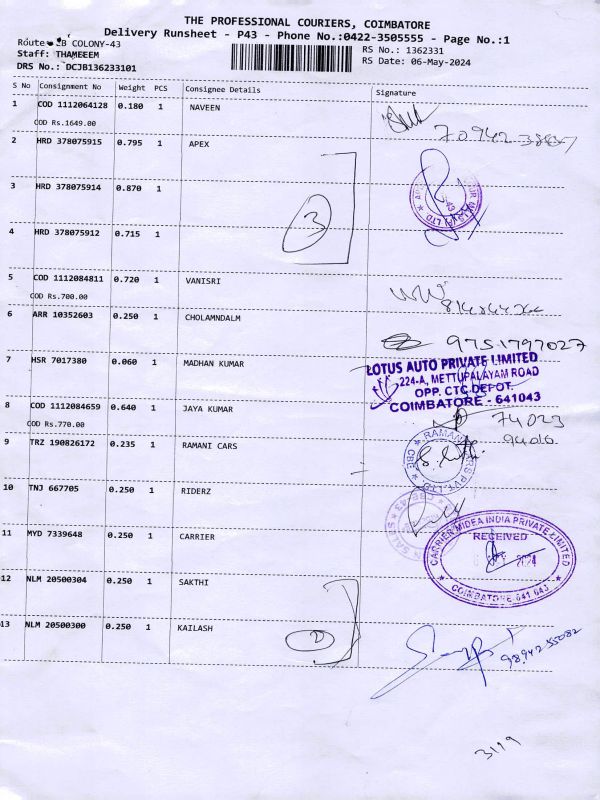 THE PROFESSIONAL COURIERS, COIMBATORE
Delivery Runsheet - P43 - Phone No.:0422-3505555 - Page No.:1
Route COLONY-43
Staff: THAMEEEM
DRS No.: DCJB136233101
RS No.: 1362331
RS Date: 06-May-2024
S No Consignment No Weight PCS Consignee Details Signature
1 COD 1112064128 0.180 1 NAVEEN
COD Rs.1649.00
2 HRD 378075915 0.795 1 APEX
3 HRD 378075914 0.870 1
3
4 HRD 378075912 0.715 1
5 COD 1112084811 0.720 1 VANISRI
COD Rs.700.00
6 ARR 10352603 0.250 1 CHOLAMNDALM
9751797027
7 HSR 7017380 0.060 1 MADHAN KUMAR
LOTUS AUTO PRIVATE LIMITED
224-A, METTUPALAYAM ROAD
OPP. CTC DEPOT.
COIMBATORE - 641043
8 COD 1112084659 0.640 1 JAYA KUMAR
COD Rs.770.00
74023
9 TRZ 190826172 0.235 1 RAMANI CARS
10 TNJ 667705 0.250 1 RIDERZ
11 MYD 7339648 0.250 1 CARRIER
CARRIER MIDEA INDIA PRIVATE LIMITED
RECEIVED
2024
COIMBATORE-641 043
12 NLM 20500304 0.250 1 SAKTHI
13 NLM 20500300 0.250 1 KAILASH
2
98942 55082
3119